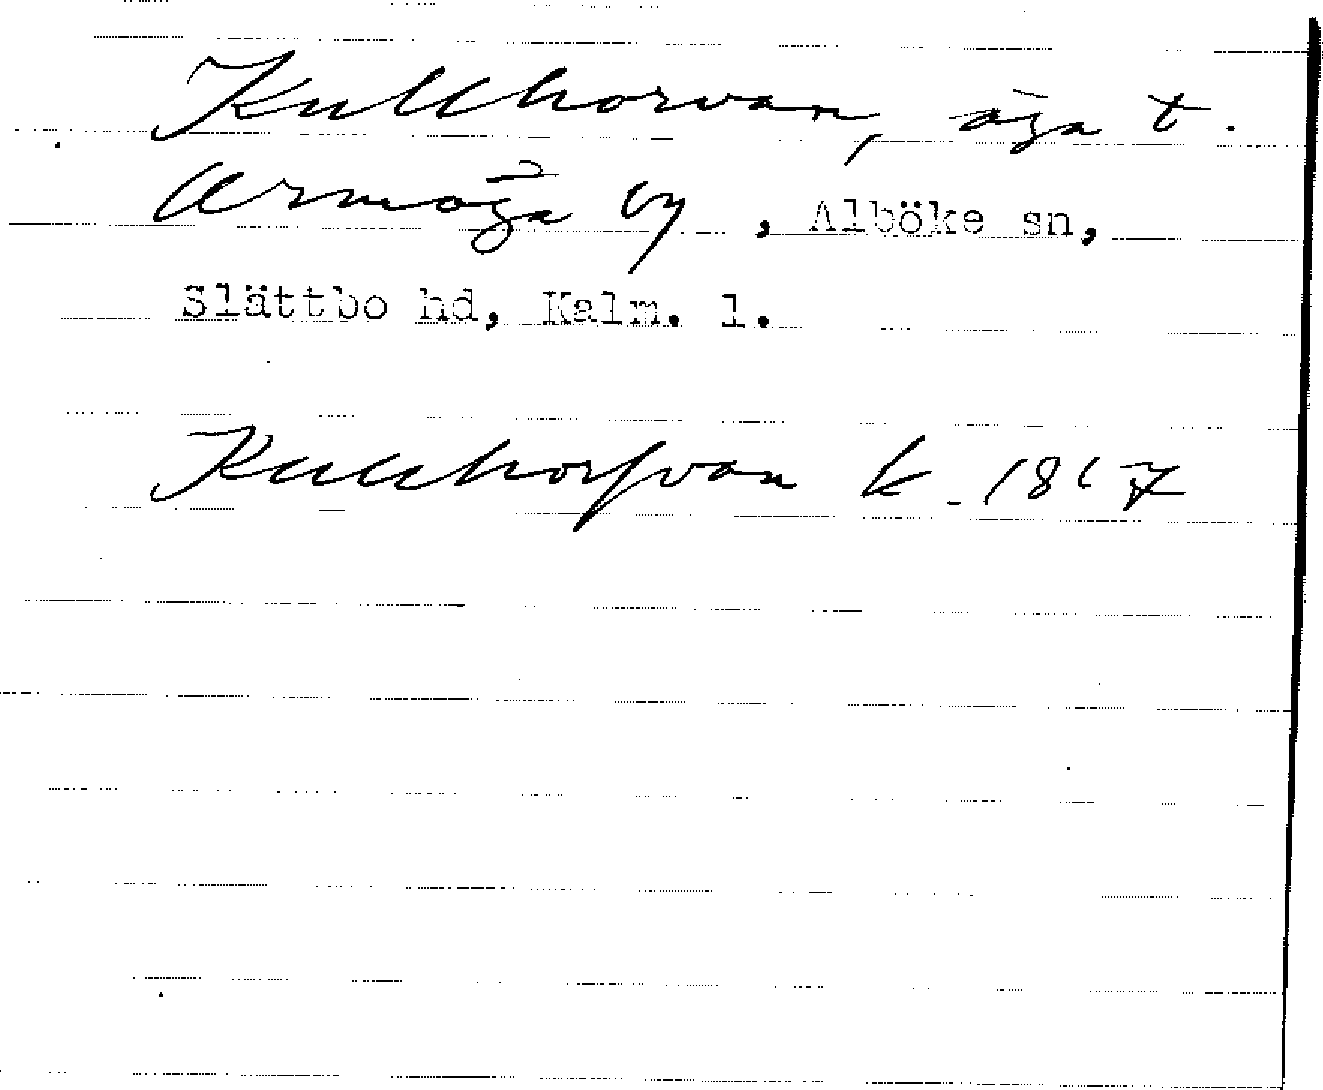 Kullhorvan, äga t.
Armöga by, Alböke sn,
Slättbo hd, Kalm. l.
Kullhorfvan k. 1867